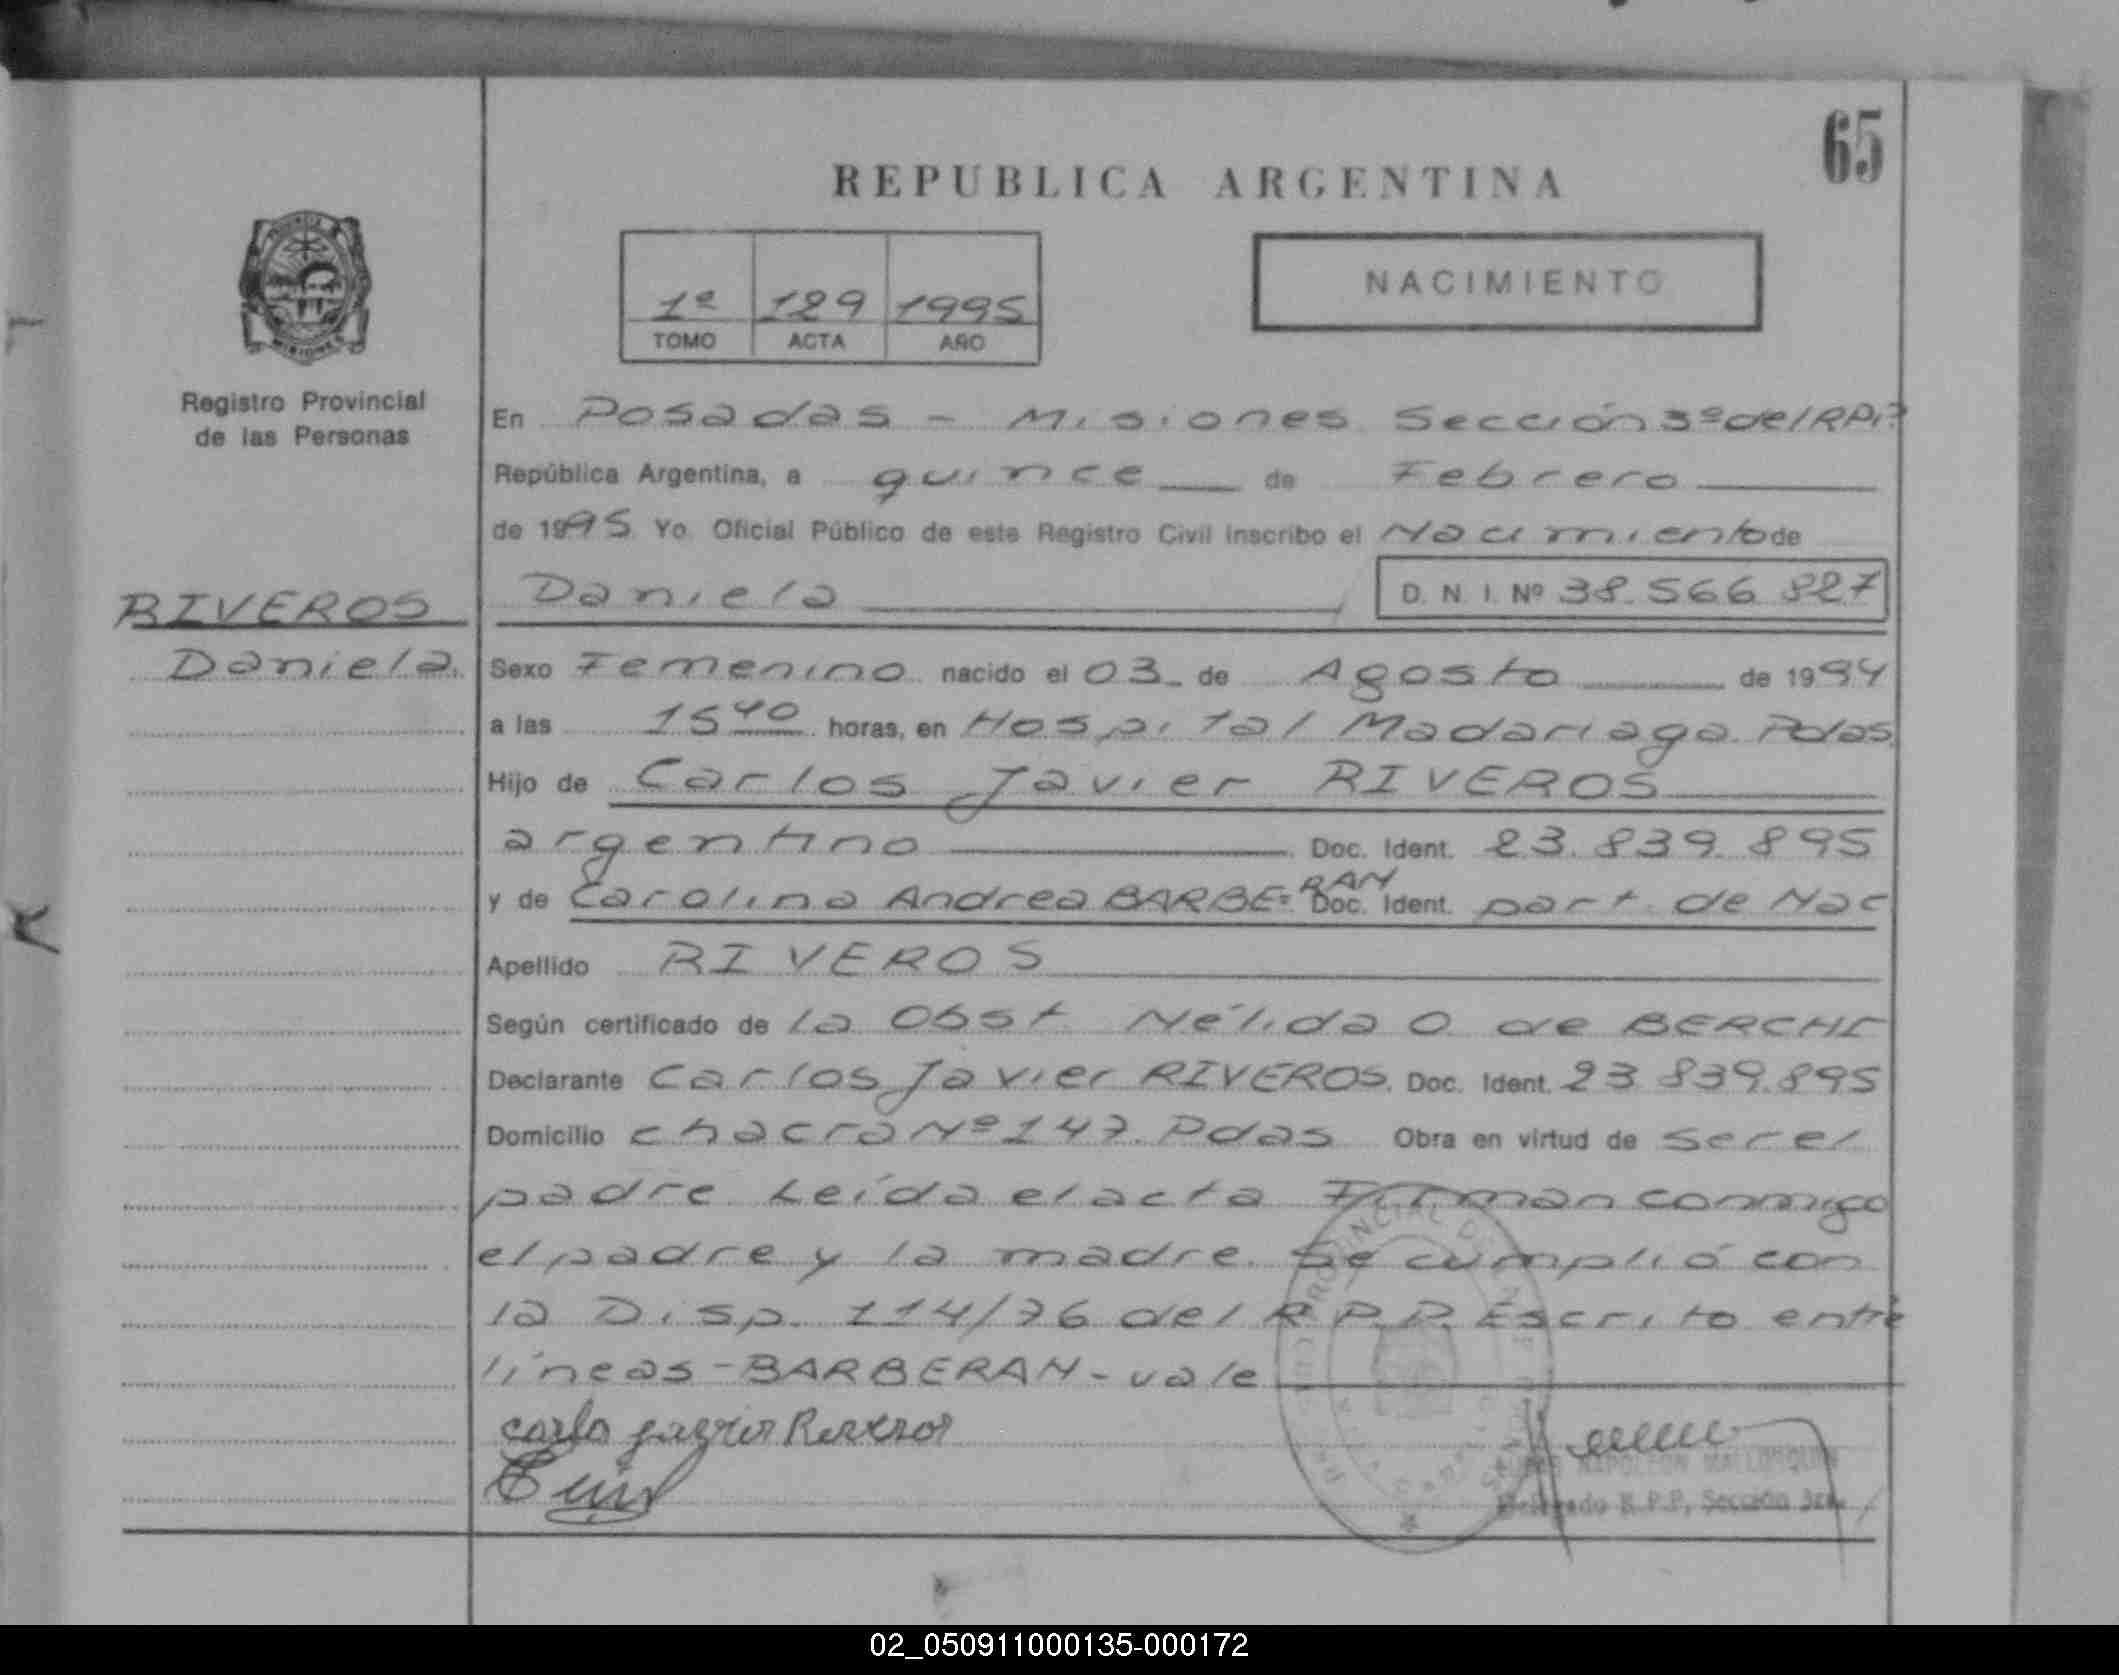 65
REPUBLICA ARGENTINA
MISIONES
Registro Provincial
de las Personas
1º 129 1995
TOMO ACTA AÑO
NACIMIENTO
En Posadas - Misiones Sección 3º del RPP
República Argentina, a quince de Febrero
de 1995 Yo Oficial Público de este Registro Civil inscribo el Nacimiento de
RIVEROS
Daniela
Daniela D. N. I. Nº 38.566.827
Sexo Femenino nacido el 03 de Agosto de 1994
a las 15 40 horas, en Hospital Madariaga. Pdas.
Hijo de Carlos Javier RIVEROS
argentino Doc. Ident. 23.839.895
y de Carolina Andrea BARBE= RAN Doc. Ident. part. de Nac
Apellido RIVEROS
Según certificado de la Obst. Nélida O. de BERCHI
Declarante Carlos Javier RIVEROS. Doc. Ident. 23.839.895
Domicilio chacra Nº 147. Pdas Obra en virtud de ser el
padre. Leída el acta Firman conmigo
el padre y la madre. Se cumplió con
la Disp. 114/76 del R.P.P. Escrito entre
líneas - BARBERAN - vale
NAPOLEON MALLORQUIN
Delegado R.P.P. Sección 3ra.
02_050911000135-000172